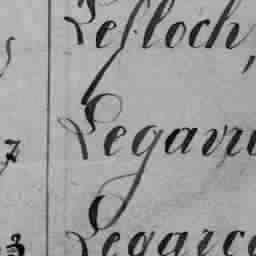 Lefloch,
7 Legavri
3 Legarce